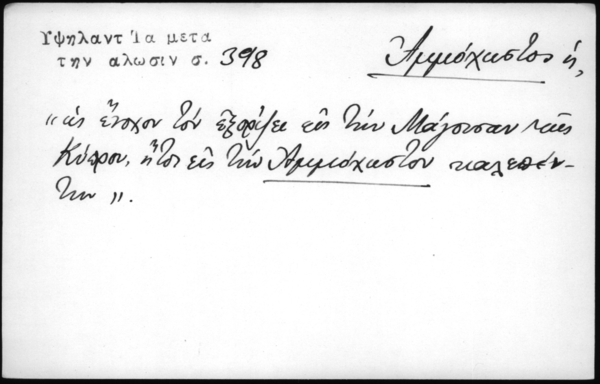 Υψηλαντ Τα μετα
την αλωσιν σ. 398
Ἀμμόχωστος ἡ,
"ὡς ἔνοχον τὸν ἐξορίζει εἰς τὴν Μάγουσαν τῆς
Κύπρου, ἤτοι εἰς τὴν Ἀμμόχωστον καλουμέν-
ην".